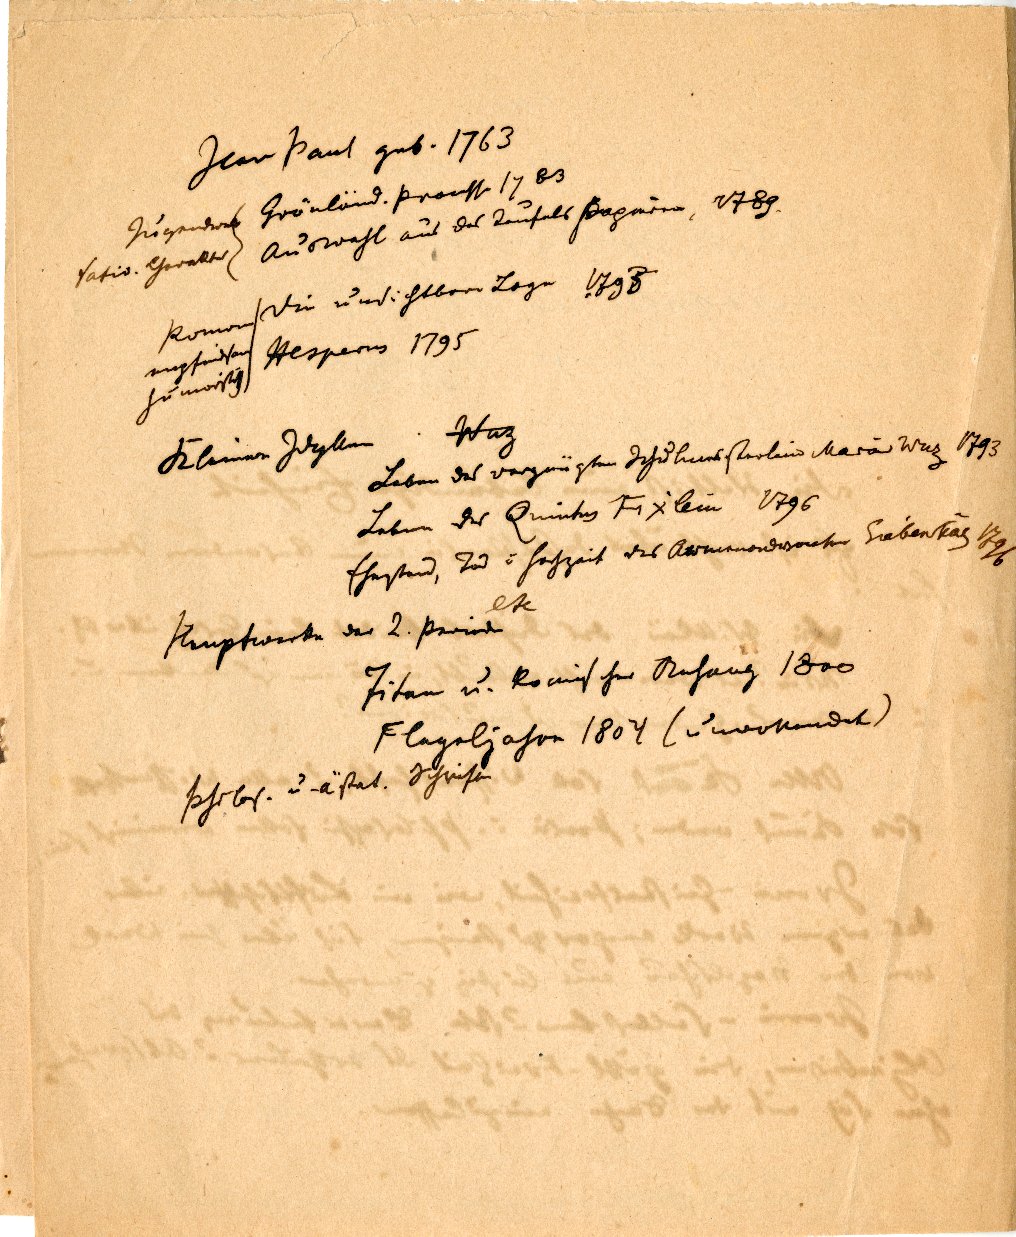 Jean Paul geb. 1763
Jugendwerke Grönländ. Prozesse 1783
satir. Charakter Auswahl aus des Teufels Papieren, 1789.
Romane Die unsichtbare Loge 1793
empfindsam
humoristisch Hesperus 1795
Kleinere Idyllen Wuz
Leben des vergnügten Schulmeisterlein Maria Wuz 1793
Leben des Quintus Fixlein 1796
Ehestand, Tod u Hochzeit des Armenadvokaten Siebenkäs 1796
etc
Hauptwerke der 2. Periode
Titan u. komischer Anhang 1800
Flegeljahre 1804 (unvollendet)
Philos. u. ästet. Schriften